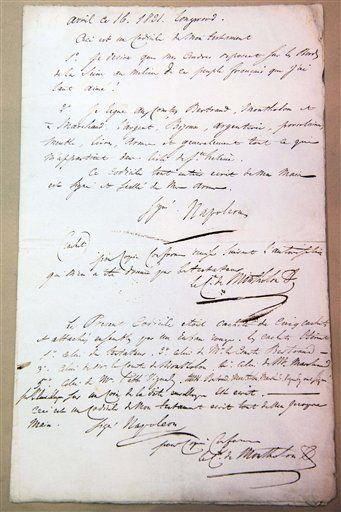 avril ce 16. 1821. Longwood.
Ceci est un Codicile de Mon testament
1° je désire que mes Cendres reposent sur les Bords
de la Seine au milieu de ce peuple français que j'ai
tant aimé !
2° je lègue aux Comtes Bertrand, Montholon et
à Marchand, l'argent, Bijoux, argenterie, porcelaine,
Meuble, livres, armes et généralement tout ce que
m'appartient dans l'isle de Ste hélène.
Ce Codicile tout entier écrit de ma Main
est signé et scellé de mes armes.
Signé Napoléon
Cachet
pour Copie Conforme
qui m'en a été donnée par le testateur
le Cte de Montholon
Le Présent Codicile était cacheté de Cinq cachets
et attaché ensemble par un ruban rouge. les cachets étaient
1° celui du testateur. 2° celui de Mr le Comte Bertrand
3° celui de Mr le Comte de Montholon. 4° celui de Mr Marchand
5° celui de Mr l'abbé Vignaly.
Ceci est un Codicile de Mon testament écrit tout de Ma propre
Main. Signé Napoléon
pour Copie Conforme
le Cte de Montholon